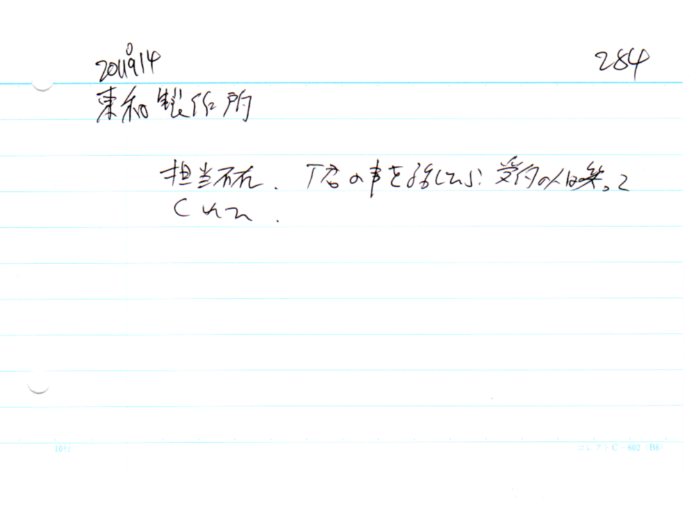 2011914 284
東和製作所
担当不在. T君の事を話したら 受付の人は笑って
くれた.